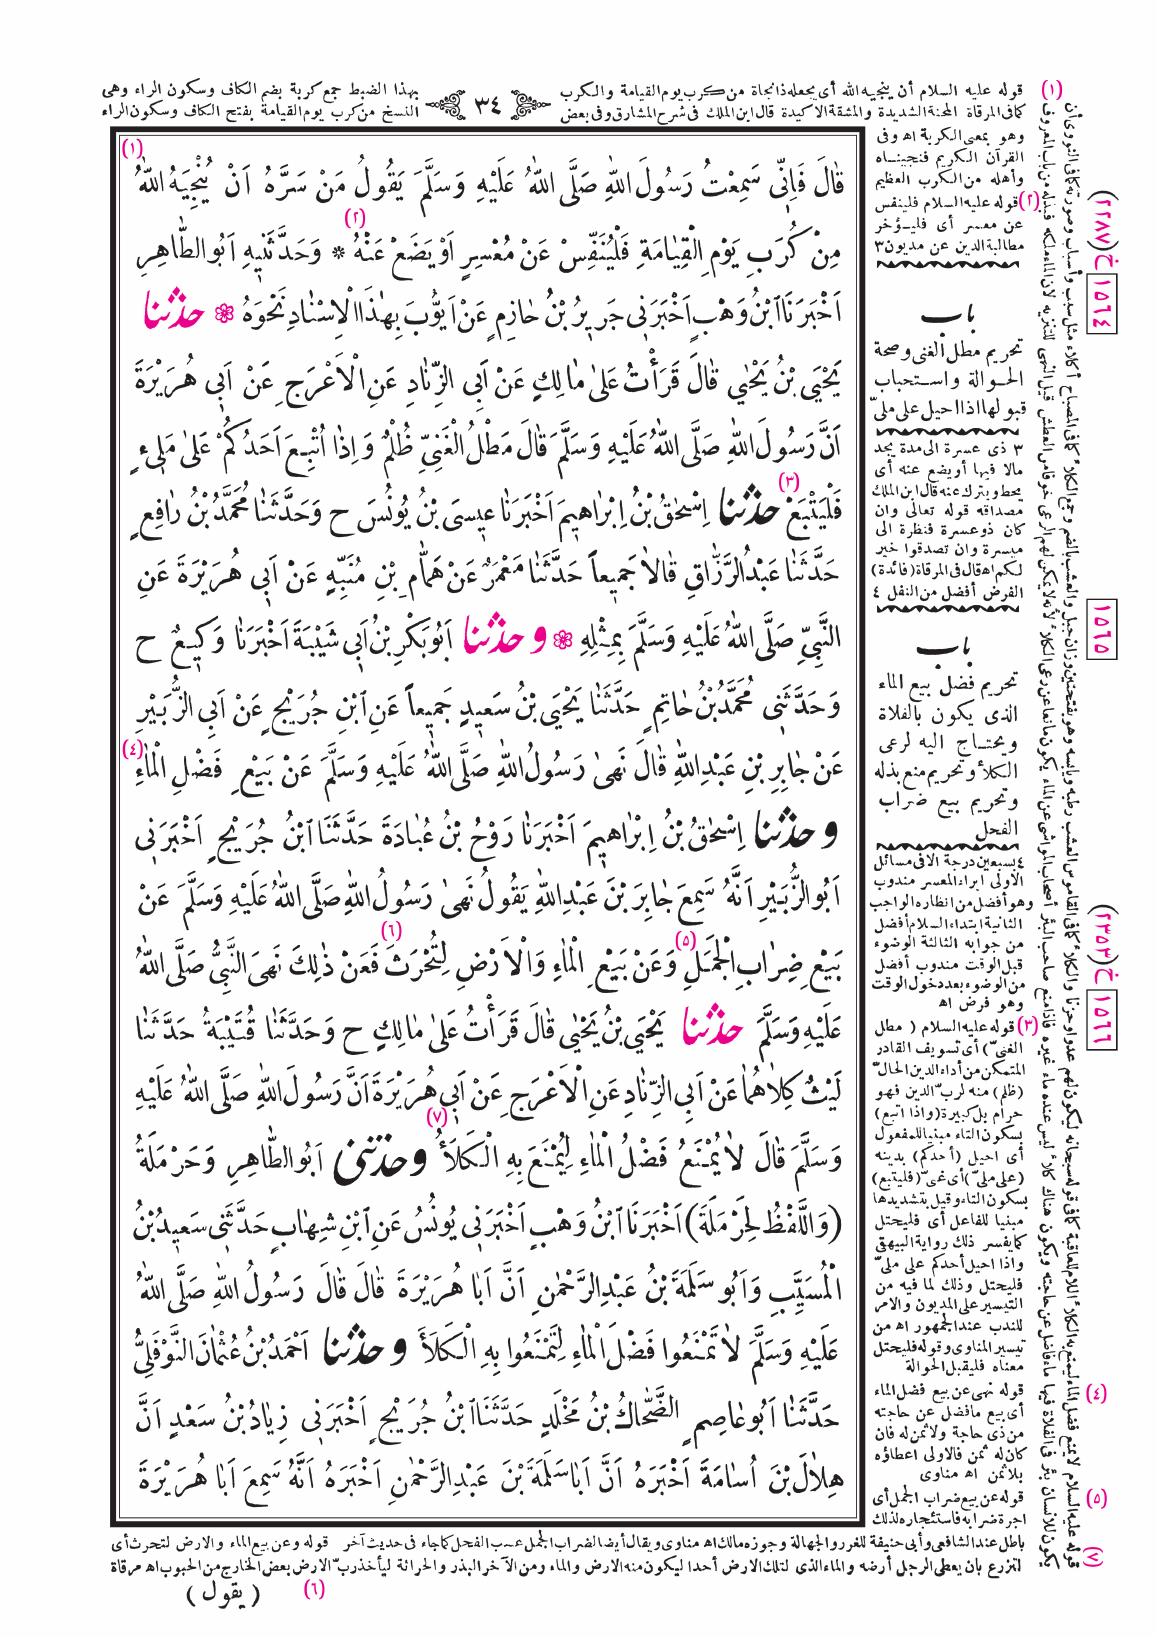 (١) قوله عليه السلام أن ينجيه الله أى يجعله ذا نجاة من كرب يوم القيامة والكرب
كافى المرقاة المحنة الشديدة والمشقة الاكيدة قال ابن الملك فى شرح المشارق وفى بعض
٣٤
بهذا الضبط جمع كربة بضم الكاف وسكون الراء وهى
النسخ من كرب يوم القيامة بفتح الكاف وسكون الراء
وهو بمعنى الكربة اه وفى
القرآن الكريم فنجيناه
وأهله من الكرب العظيم
(٢) قوله عليه السلام فلينفس
عن معسر أى فليؤخر
مطالبة الدين عن مديون ٣
(١)
قَالَ فَاِنّى سَمِعْتُ رَسُولَ اللهِ صَلَّى اللهُ عَلَيْهِ وَسَلَّمَ يَقُولُ مَنْ سَرَّهُ اَنْ يُنْجِيَهُ اللهُ
(٢)
مِنْ كُرَبِ يَوْمِ الْقِيَامَةِ فَلْيُنَفِّسْ عَنْ مُعْسِرٍ اَوْ يَضَعْ عَنْهُ * وَحَدَّثَنِيهِ اَبُو الطَّاهِرِ
اَخْبَرَنَا ابْنُ وَهْبٍ اَخْبَرَنِى جَرِيرُ بْنُ حَازِمٍ عَنْ اَيُّوبَ بِهٰذَا الْاِسْنَادِ نَحْوَهُ ❁ حدثنا
يَحْيَى بْنُ يَحْيٰى قَالَ قَرَأْتُ عَلىٰ مَالِكٍ عَنْ اَبِى الزِّنَادِ عَنِ الْاَعْرَجِ عَنْ اَبِى هُرَيْرَةَ
اَنَّ رَسُولَ اللهِ صَلَّى اللهُ عَلَيْهِ وَسَلَّمَ قَالَ مَطْلُ الْغَنِىِّ ظُلْمٌ وَاِذَا اُتْبِعَ اَحَدُكُمْ عَلىٰ مَلِىءٍ
(٣)
فَلْيَتْبَعْ حدثنا اِسْحٰقُ بْنُ اِبْرَاهِيمَ اَخْبَرَنَا عِيسَى بْنُ يُونُسَ ح وَحَدَّثَنَا مُحَمَّدُ بْنُ رَافِعٍ
حَدَّثَنَا عَبْدُ الرَّزَّاقِ قَالَا جَمِيعاً حَدَّثَنَا مَعْمَرٌ عَنْ هَمَّامِ بْنِ مُنَبِّهٍ عَنْ اَبِى هُرَيْرَةَ عَنِ
النَّبِىِّ صَلَّى اللهُ عَلَيْهِ وَسَلَّمَ بِمِثْلِهِ ❁ وحدثنا اَبُو بَكْرِ بْنُ اَبِى شَيْبَةَ اَخْبَرَنَا وَكِيعٌ ح
وَحَدَّثَنِى مُحَمَّدُ بْنُ حَاتِمٍ حَدَّثَنَا يَحْيَى بْنُ سَعِيدٍ جَمِيعاً عَنِ ابْنِ جُرَيْجٍ عَنْ اَبِى الزُّبَيْرِ
(٤)
عَنْ جَابِرِ بْنِ عَبْدِ اللهِ قَالَ نَهىٰ رَسُولُ اللهِ صَلَّى اللهُ عَلَيْهِ وَسَلَّمَ عَنْ بَيْعِ فَضْلِ الْمَاءِ
وحدثنا اِسْحٰقُ بْنُ اِبْرَاهِيمَ اَخْبَرَنَا رَوْحُ بْنُ عُبَادَةَ حَدَّثَنَا ابْنُ جُرَيْجٍ اَخْبَرَنِى
اَبُو الزُّبَيْرِ اَنَّهُ سَمِعَ جَابِرَ بْنَ عَبْدِ اللهِ يَقُولُ نَهىٰ رَسُولُ اللهِ صَلَّى اللهُ عَلَيْهِ وَسَلَّمَ عَنْ
(٥) (٦)
بَيْعِ ضِرَابِ الْجَمَلِ وَعَنْ بَيْعِ الْمَاءِ وَالْاَرْضِ لِتُحْرَثَ فَعَنْ ذٰلِكَ نَهَى النَّبِىُّ صَلَّى اللهُ
عَلَيْهِ وَسَلَّمَ حدثنا يَحْيَى بْنُ يَحْيٰى قَالَ قَرَأْتُ عَلىٰ مَالِكٍ ح وَحَدَّثَنَا قُتَيْبَةُ حَدَّثَنَا
لَيْثٌ كِلَاهُمَا عَنْ اَبِى الزِّنَادِ عَنِ الْاَعْرَجِ عَنْ اَبِى هُرَيْرَةَ اَنَّ رَسُولَ اللهِ صَلَّى اللهُ عَلَيْهِ
(٧)
وَسَلَّمَ قَالَ لَا يُمْنَعُ فَضْلُ الْمَاءِ لِيُمْنَعَ بِهِ الْكَلَأُ وحدثنى اَبُو الطَّاهِرِ وَحَرْمَلَةُ
(وَاللَّفْظُ لِحَرْمَلَةَ) اَخْبَرَنَا ابْنُ وَهْبٍ اَخْبَرَنِى يُونُسُ عَنِ ابْنِ شِهَابٍ حَدَّثَنِى سَعِيدُ بْنُ
الْمُسَيَّبِ وَاَبُو سَلَمَةَ بْنُ عَبْدِ الرَّحْمٰنِ اَنَّ اَبَا هُرَيْرَةَ قَالَ قَالَ رَسُولُ اللهِ صَلَّى اللهُ
عَلَيْهِ وَسَلَّمَ لَا تَمْنَعُوا فَضْلَ الْمَاءِ لِتَمْنَعُوا بِهِ الْكَلَأَ وحدثنا اَحْمَدُ بْنُ عُثْمَانَ النَّوْفَلِىُّ
حَدَّثَنَا اَبُو عَاصِمٍ الضَّحَّاكُ بْنُ مَخْلَدٍ حَدَّثَنَا ابْنُ جُرَيْجٍ اَخْبَرَنِى زِيَادُ بْنُ سَعْدٍ اَنَّ
هِلَالَ بْنَ اُسَامَةَ اَخْبَرَهُ اَنَّ اَبَا سَلَمَةَ بْنَ عَبْدِ الرَّحْمٰنِ اَخْبَرَهُ اَنَّهُ سَمِعَ اَبَا هُرَيْرَةَ
باب
تحريم مطل الغنى وصحة
الحوالة واستحباب
قبولها اذا احيل على ملىّ
٣ ذى عسرة الى مدة يجد
مالا فيها أو يضع عنه أى
يحط ويترك عنه قال ابن الملك
مصداقه قوله تعالى وان
كان ذو عسرة فنظرة الى
ميسرة وان تصدقوا خير
لكم اه قال فى المرقاة (فائدة)
الفرض أفضل من النفل ٤
باب
تحريم فضل بيع الماء
الذى يكون بالفلاة
ويحتاج اليه لرعى
الكلأ وتحريم منع بذله
وتحريم بيع ضراب
الفحل
٤ بسبعين درجة الا فى مسائل
الاولى ابراء المعسر مندوب
وهو أفضل من انظاره الواجب
الثانية ابتداء السلام أفضل
من جوابه الثالثة الوضوء
قبل الوقت مندوب أفضل
من الوضوء بعد دخول الوقت
وهو فرض اه
(٣) قوله عليه السلام (مطل
الغنىّ) أى تسويف القادر
المتمكن من أداء الدين الحالّ
(ظلم) منه لربّ الدين فهو
حرام بل كبيرة (واذا اتبع)
بسكون التاء مبنيا للمفعول
أى احيل (أحدكم) بدينه
(على ملىّ) أى غنىّ (فليتبع)
بسكون التاء وقيل بتشديدها
مبنيا للفاعل أى فليحتل
كما يفسر ذلك رواية البيهقى
واذا احيل أحدكم على ملىّ
فليحتل وذلك لما فيه من
التيسير على المديون والامر
للندب عند الجمهور اه من
تيسير المناوى وقوله فليحتل
معناه فليقبل الحوالة
قوله نهى عن بيع فضل الماء (٤)
أى بيع ما فضل عن حاجته
من ذى حاجة ولا ثمن له فان
كان له ثمن فالاولى اعطاؤه
بلا ثمن اه مناوى
قوله عن بيع ضراب الجمل أى (٥)
اجرة ضرابه فاستئجاره لذلك
باطل عند الشافعى وأبى حنيفة للغرر والجهالة وجوزه مالك اه مناوى ويقال أيضا لضراب الجمل عسب الفحل كما جاء فى حديث آخر قوله وعن بيع الماء والارض لتحرث أى
لتزرع بان يعطى الرجل أرضه والماء الذى لتلك الارض أحدا ليكون منه الارض والماء ومن الآخر البذر والحراثة ليأخذ ربّ الارض بعض الخارج من الحبوب اه مرقاة
(٦)
(يقول)
(٢٢٨٧) خ
١٥٦٤
١٥٦٥
(٢٣٥٣) خ
١٥٦٦
(٧)